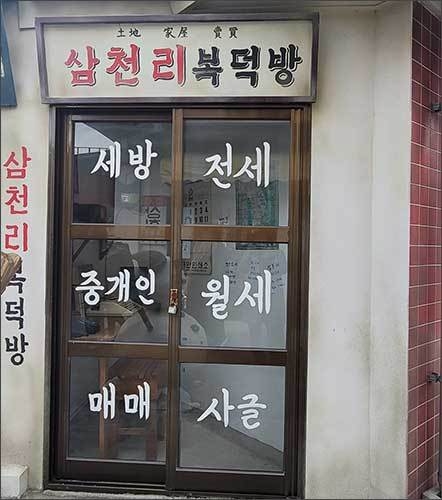 土地 家屋 賣買
삼천리복덕방
삼천리복덕방
세방 전세
중개인 월세
매매 사글